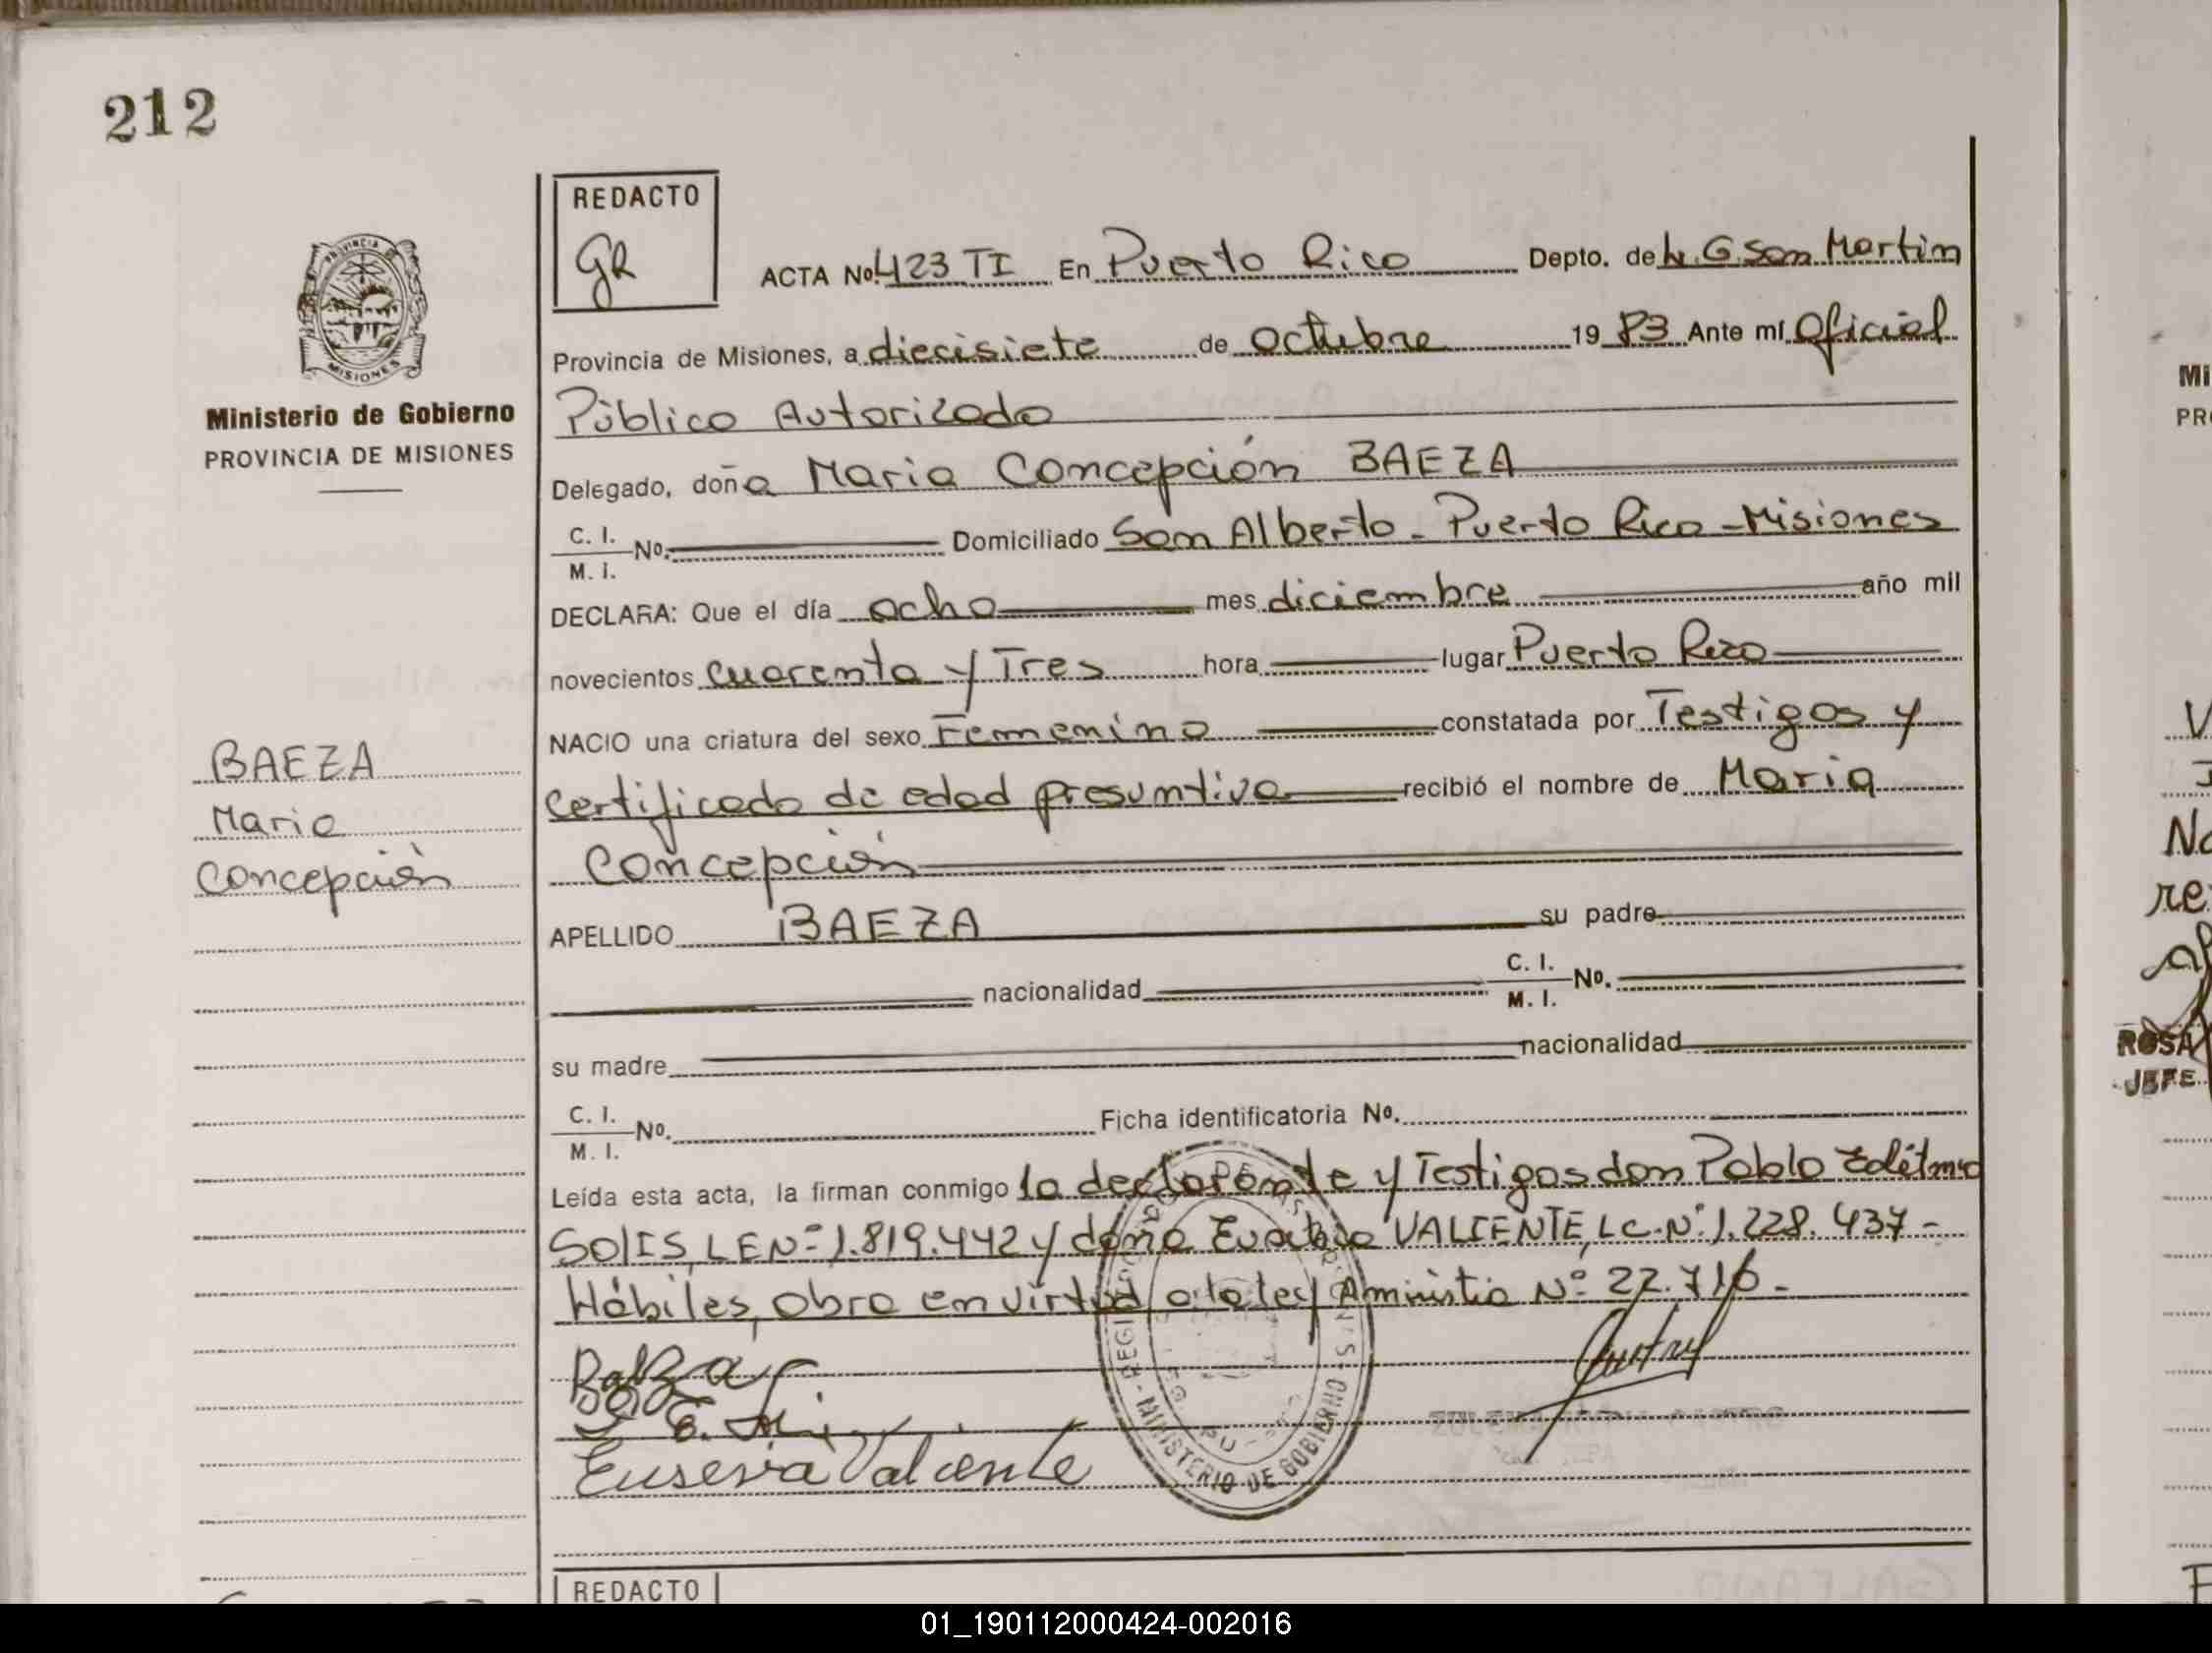 212
REDACTO
GR
ACTA Nº 423 TI En Puerto Rico Depto. de L. G. San Martin
PROVINCIA
MISIONES
Provincia de Misiones, a diecisiete de octubre 1983 Ante mí Oficial
Ministerio de Gobierno
Público Autorizado
PROVINCIA DE MISIONES
Delegado, doña Maria Concepción BAEZA
C. I.
M. I. Nº. Domiciliado San Alberto - Puerto Rico - Misiones
DECLARA: Que el día ocho mes diciembre año mil
novecientos cuarenta y Tres hora lugar Puerto Rico
NACIO una criatura del sexo Femenino constatada por Testigos y
BAEZA
certificado de edad presuntiva recibió el nombre de Maria
Maria
Concepción
Concepción
APELLIDO BAEZA su padre
nacionalidad C. I.
M. I. Nº.
su madre nacionalidad
C. I.
M. I. Nº. Ficha identificatoria Nº.
Leída esta acta, la firman conmigo la declarante y Testigos don Pablo
SOLIS, LE Nº 1.819.442 y doña VALIENTE, LC. Nº 1.228.437 -
Hábiles, obra en virtud a la ley Aministia Nº 22.716 -
Euseria Valiente
MINISTERIO DE GOBIERNO
REDACTO
ROSA
JEFE
01_190112000424-002016